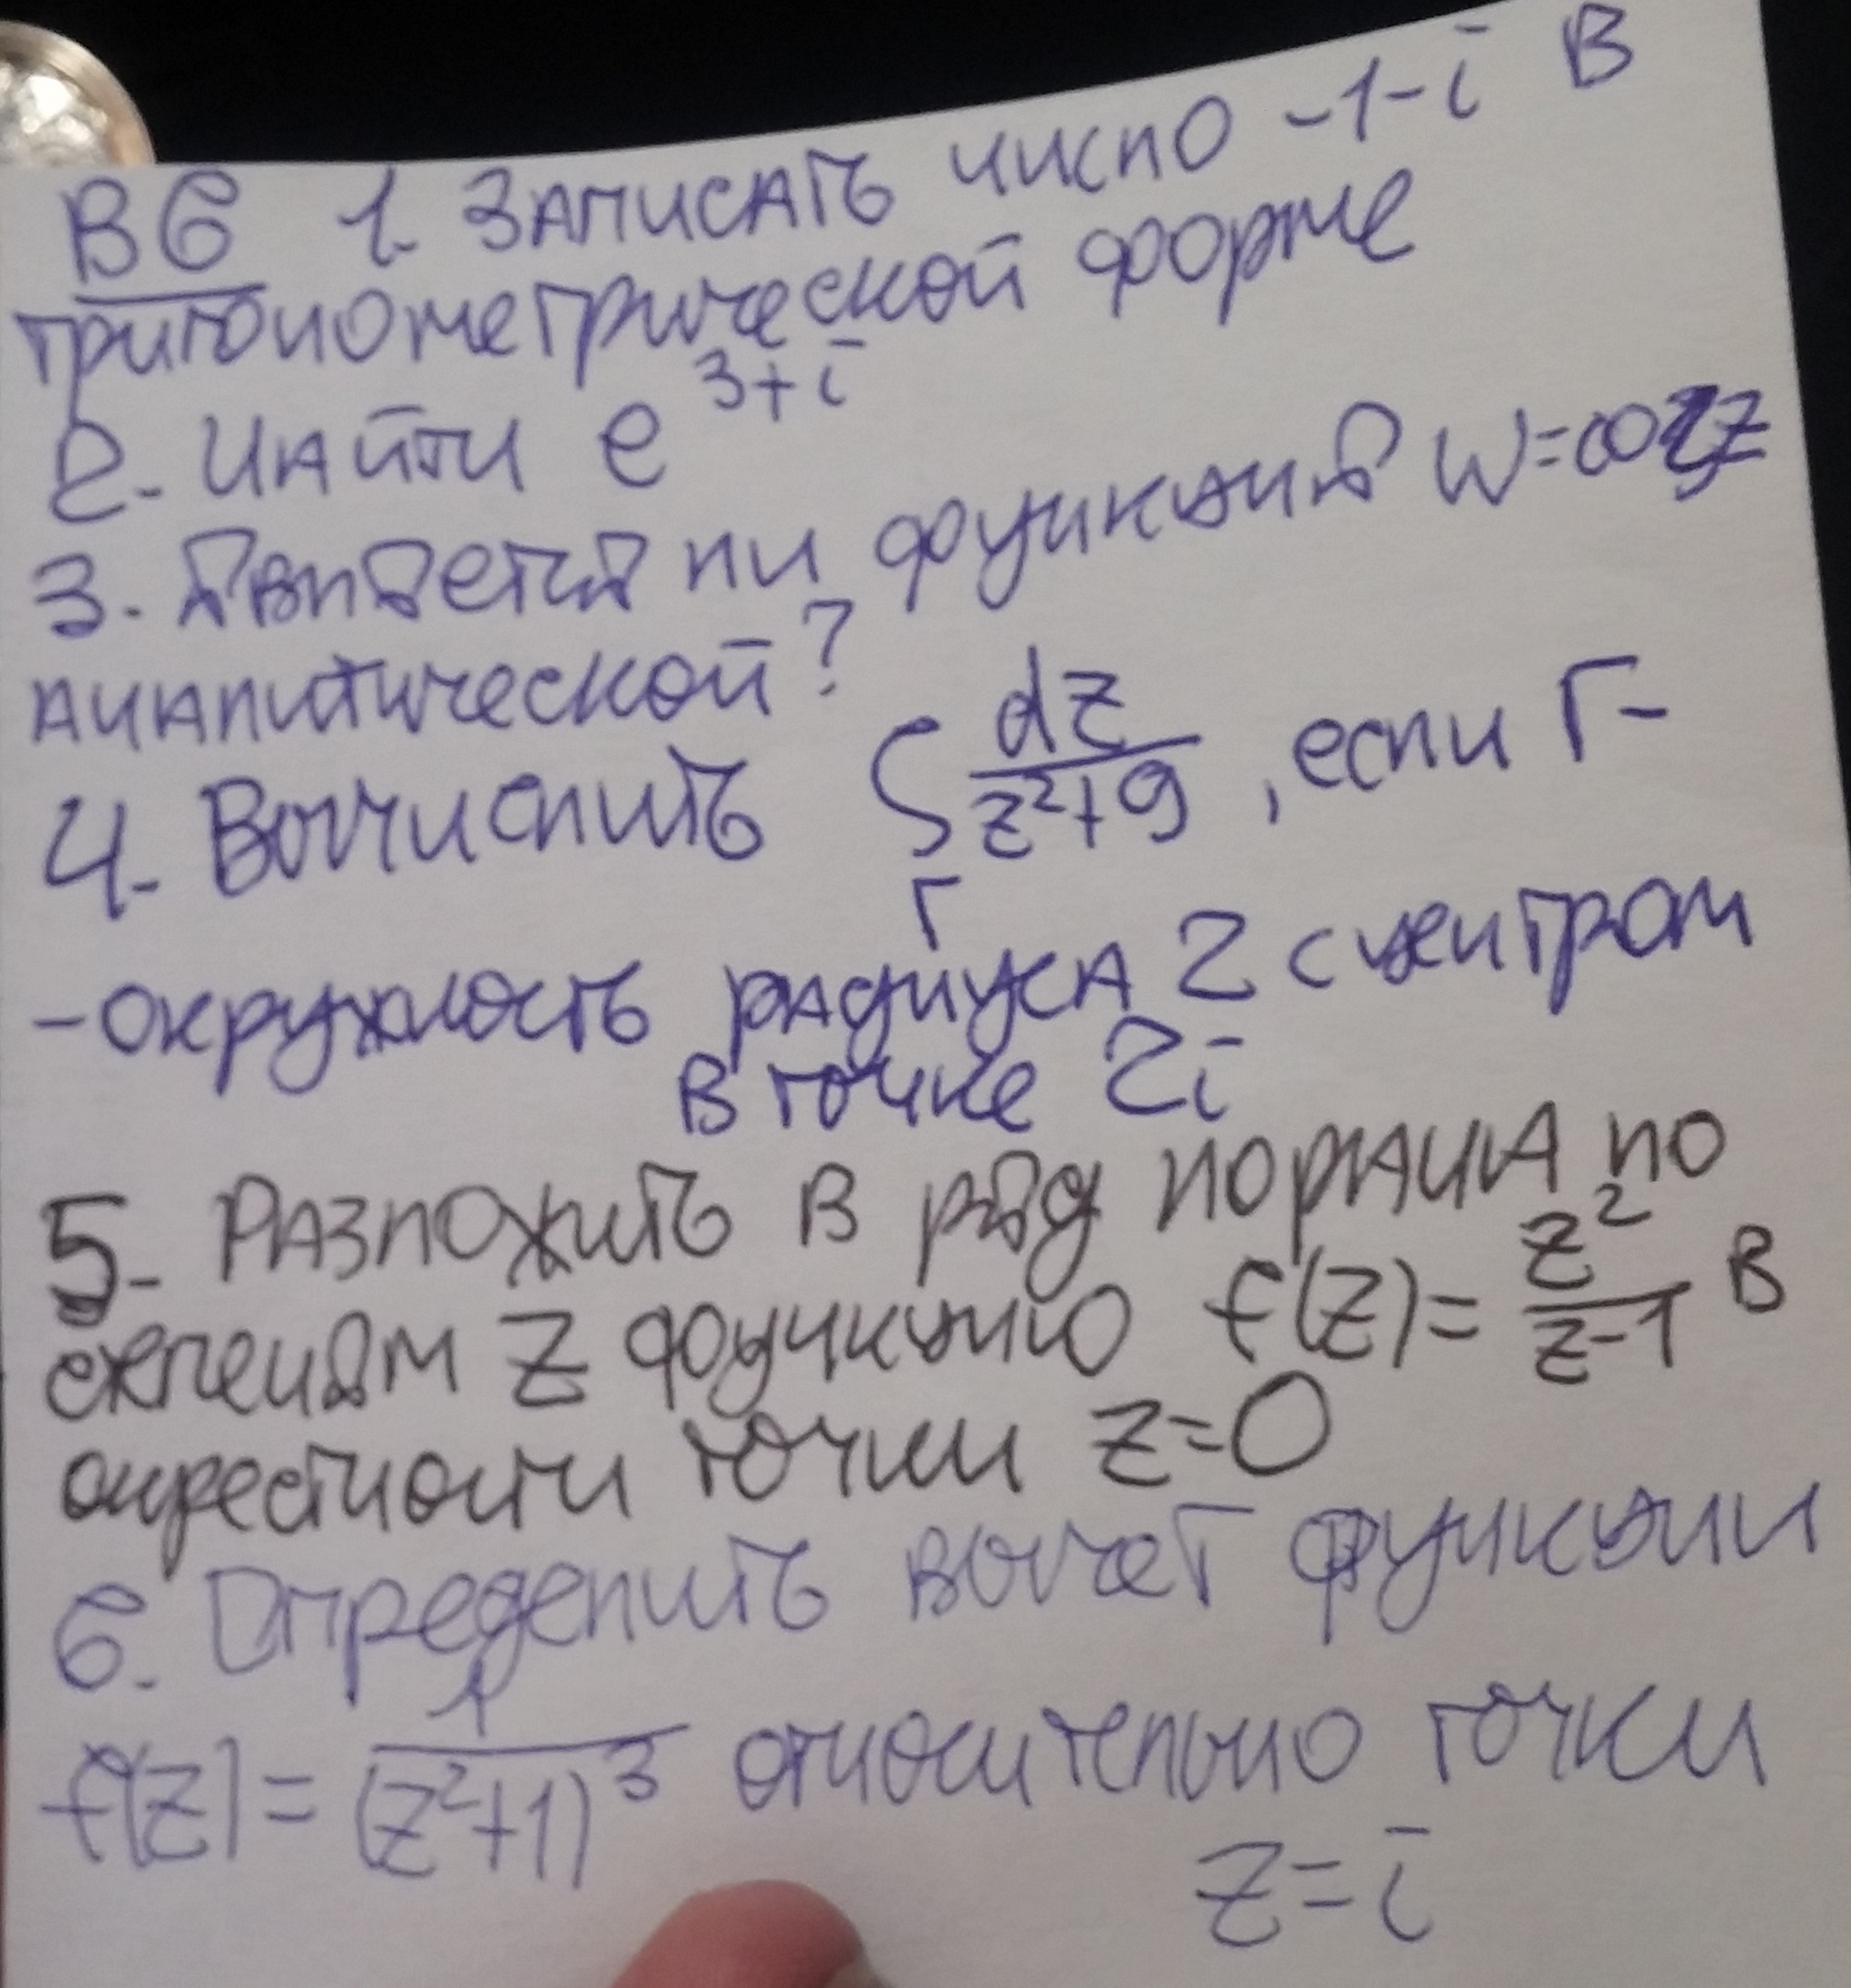 В6 1. Записать число -1-i в
тригонометрической форме
2. Найти e^{3+i}
3. Является ли функция W=cos z
аналитической?
4. Вычислить ∫_Г dz/(z²+9), если Г-
-окружность радиуса 2 с центром
в точке 2i
5. Разложить в ряд Лорана по
степеням z функцию f(z)= z²/(z-1) в
окрестности точки z=0
6. Определить вычет функции
f(z)= 1/(z²+1)³ относительно точки
z=i